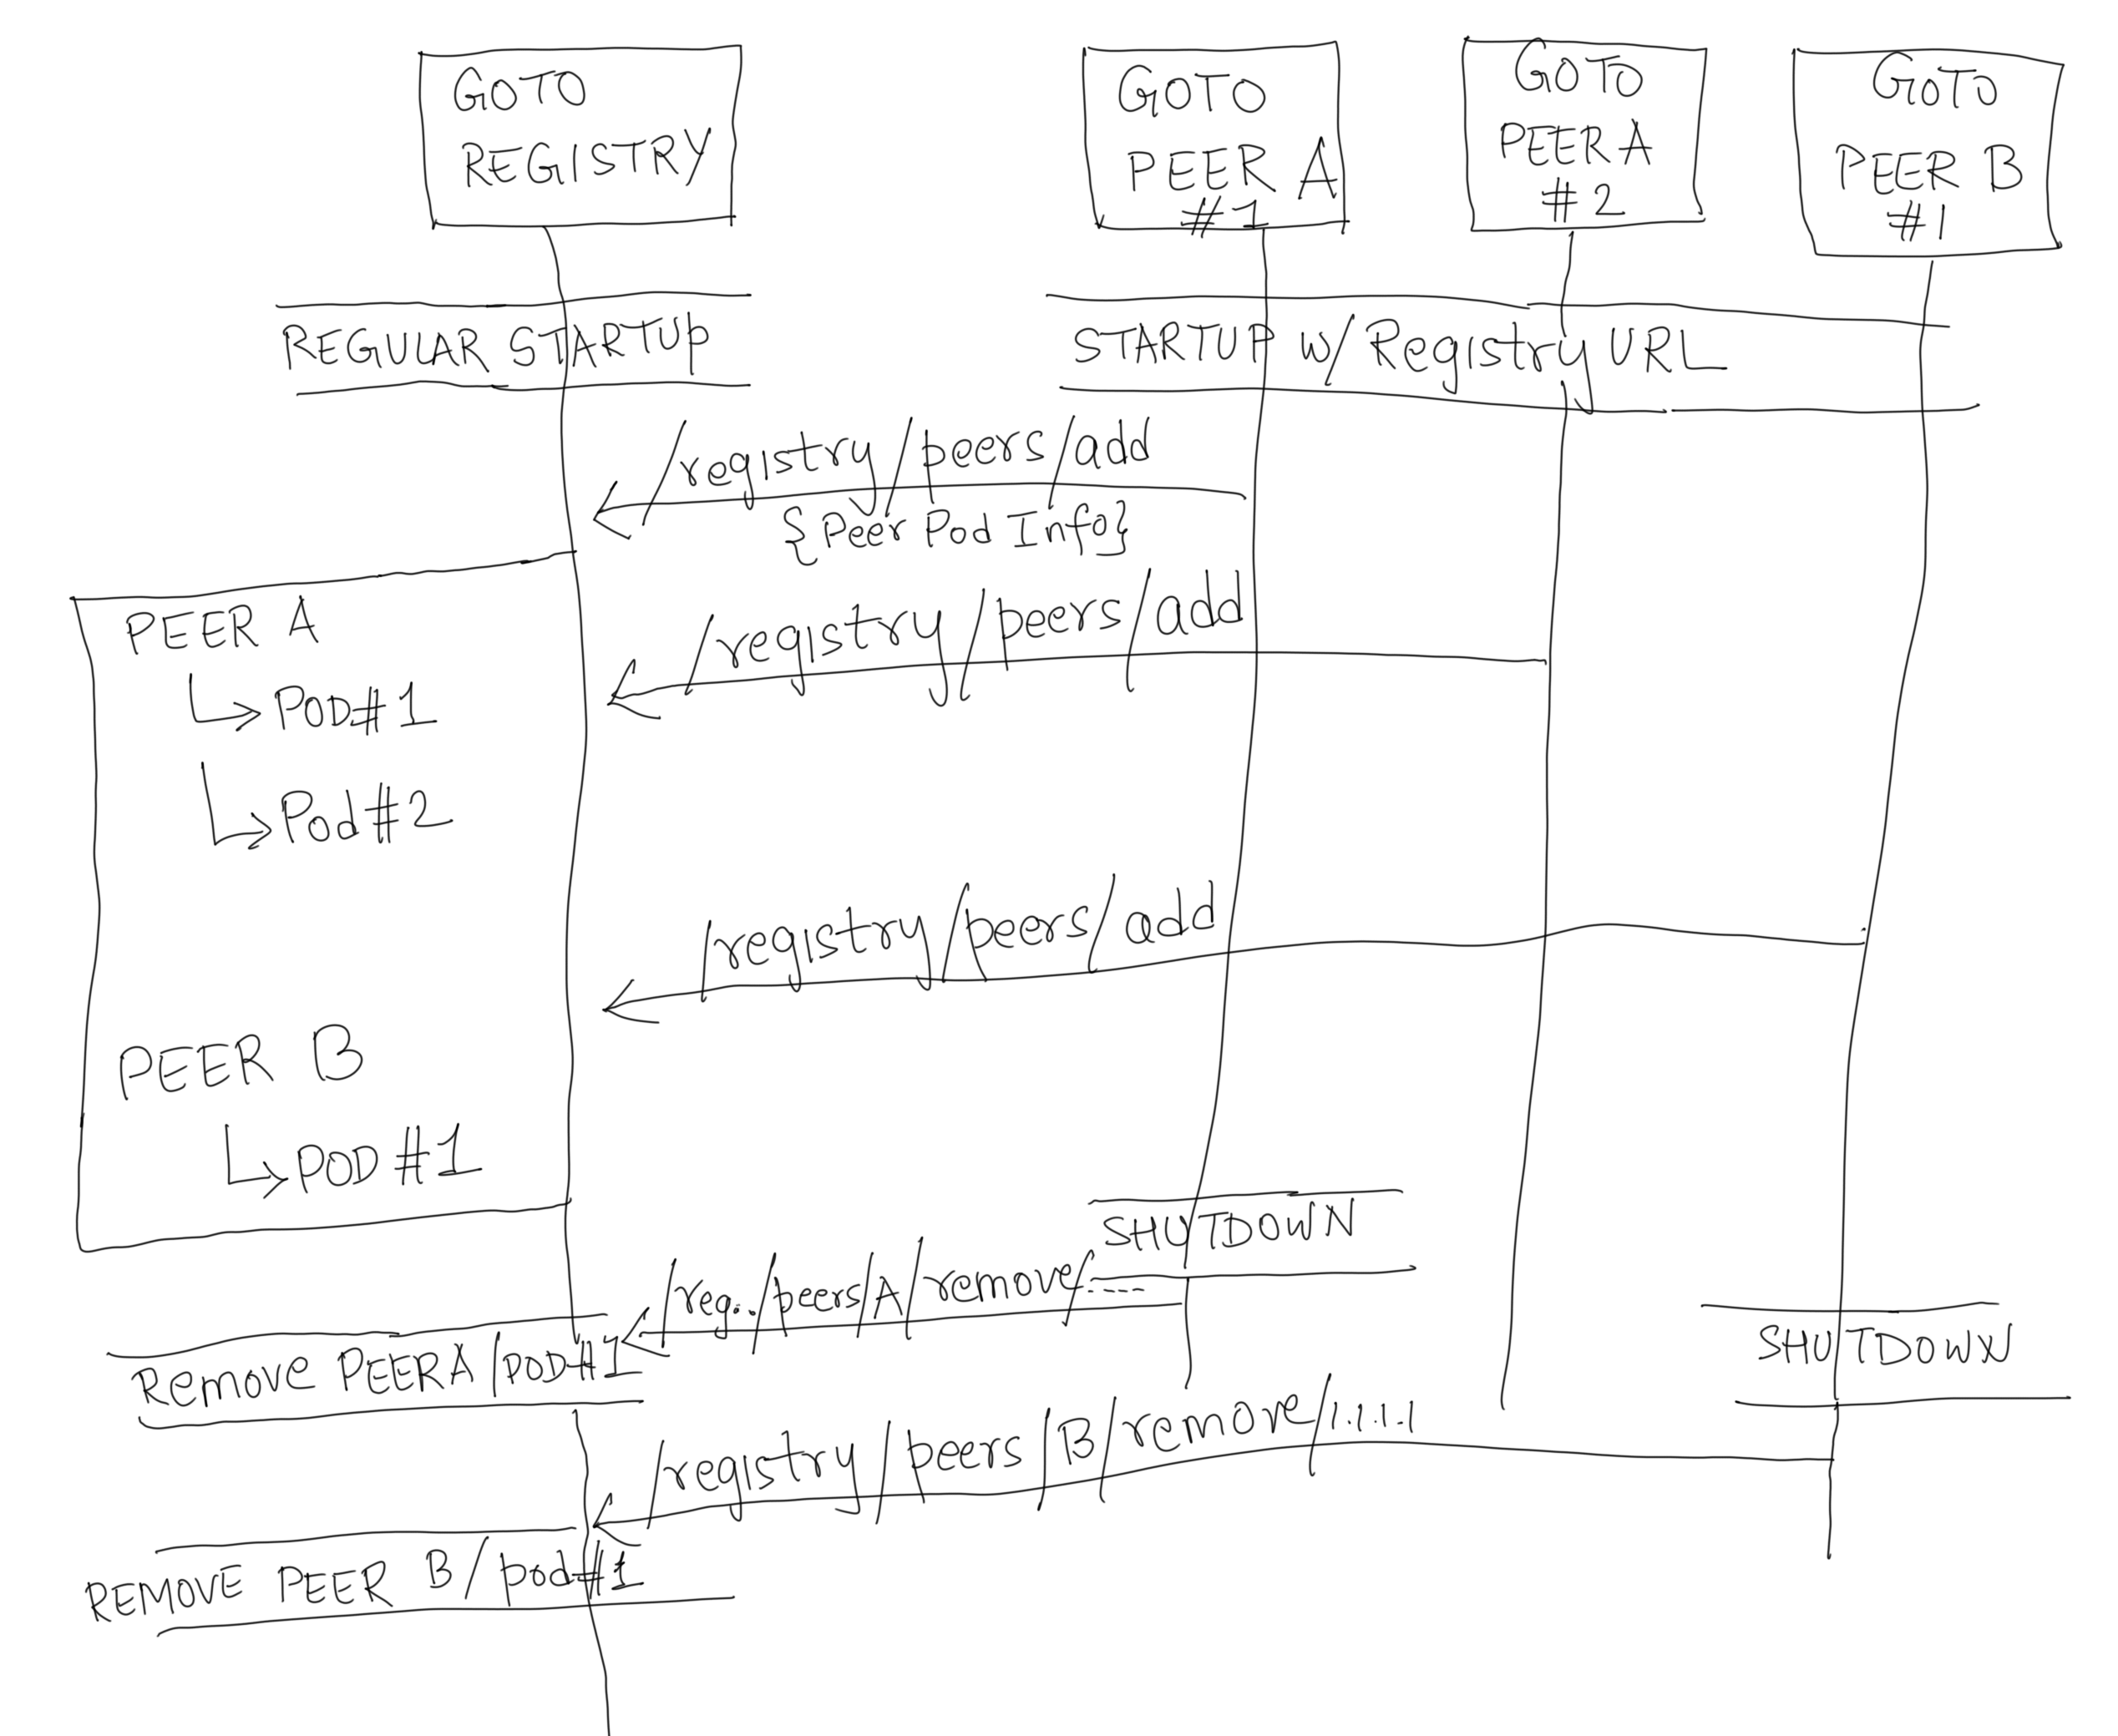 GOTO
REGISTRY
GOTO
PEER A
#1
GOTO
PEER A
#2
GOTO
PEER B
#1
REGULAR STARTUP
STARTUP W/ Registry URL
/registry/peers/add
{Peer Pod Info}
PEER A
POD#1
Pod#2
/registry/peers/add
/registry/peers/add
PEER B
POD #1
SHUTDOWN
/reg../peers/A/remove/....
Remove PEERA/POD#1
SHUTDOWN
/registry/peers/B/remove/1.1.1.1
REMOVE PEER B/pod#1